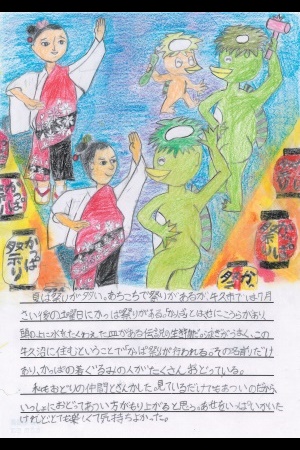 かっぱ祭り
かっぱ祭り
かっぱ祭り
夏は祭りが多い。あちこちで祭りがあるが、牛久市では7月
さい後の土曜日にかっぱ祭りがある。かっぱとはせにこうらがあり、
頭の上に水をたくわえた皿がある伝説の生き物だ。泳ぎがうまく、この
牛久沼に住むということで「かっぱ祭り」が行われる。その名前だけ
あり、かっぱの着ぐるみの人がたくさんおどっている。
私もおどりの仲間とさんかした。見ているだけでもあついのだから、
いっしょにおどってあつい方がもり上がると思う。あせをいっぱいかいた
けれど、とても楽しくて気持ちよかった。